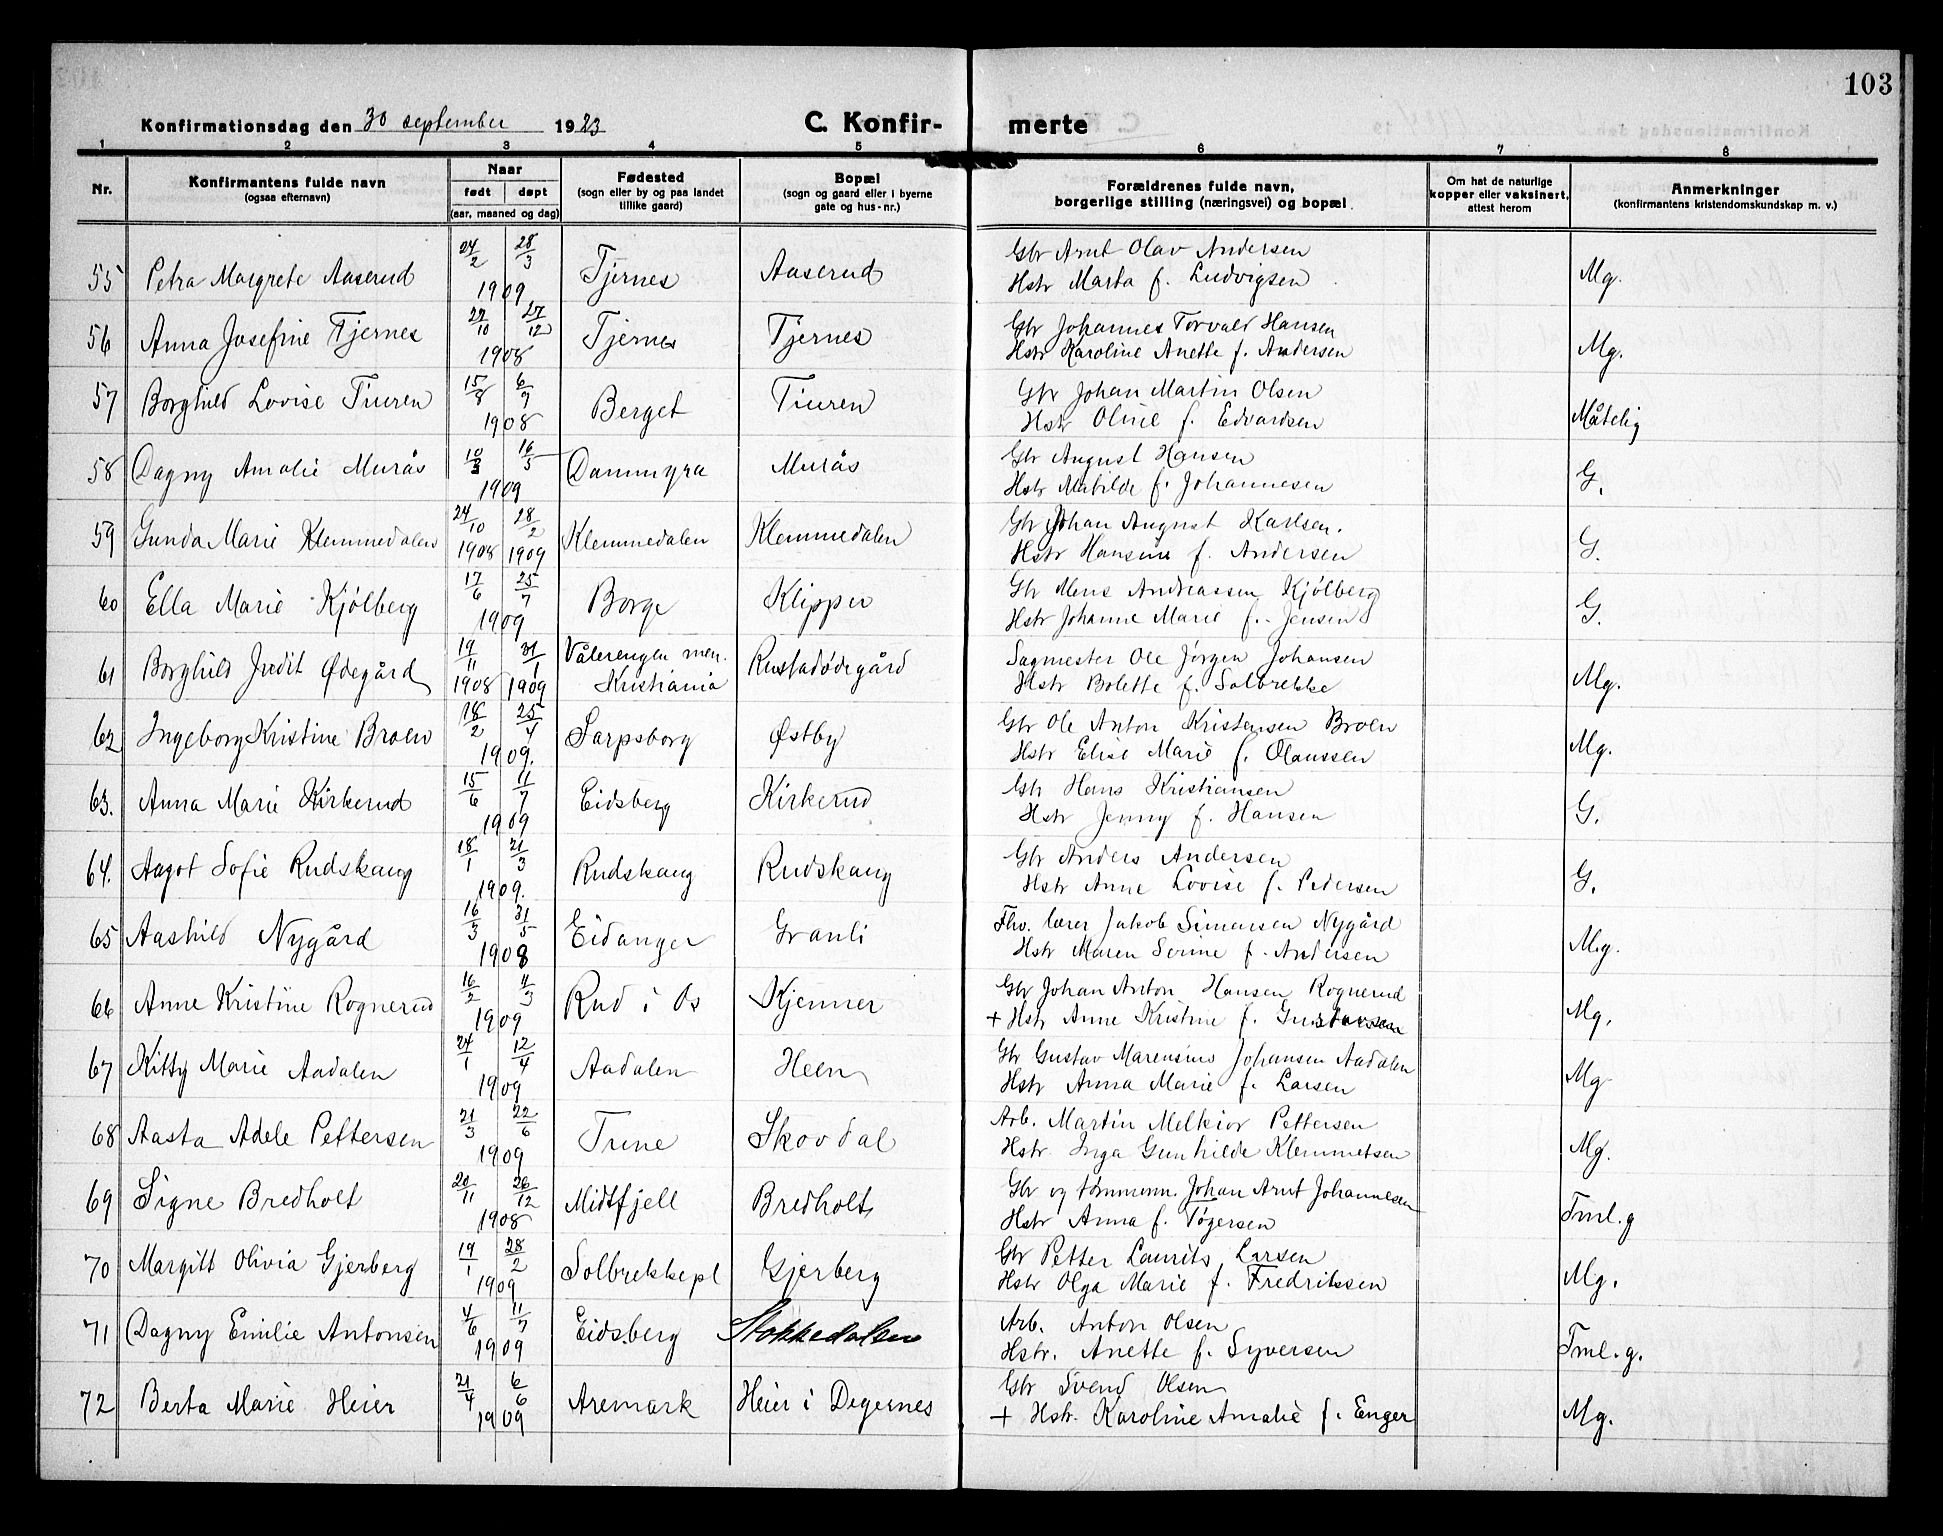 103
Konfirmationsdag den 30 september 1923
C. Konfir-
merte
1 2 3 4 5 6 7 8
Nr.
Konfirmantens fulde navn
(ogsaa efternavn)
Naar
født døpt
(aar, maaned og dag)
Fødested
(sogn eller by og paa landet
tillike gaard)
Bopæl
(sogn og gaard eller i byerne
gate og hus-nr.)
Forældrenes fulde navn,
borgerlige stilling (næringsvei) og bopæl
Om hat de naturlige
kopper eller vaksinert,
attest herom
Anmerkninger
(konfirmantens kristendomskundskap m. v.)
55 Petra Margrete Aaserud 24/2 28/3 1909 Tjernes Aaserud Gbr Arnt Olav Andersen
Hstr Marta f. Ludvigsen Mg.
56 Anna Josefine Tjernes 27/10 27/12 1908 Tjernes Tjernes Gbr Johannes Torvald Hansen
Hstr Karoline Anette f. Andersen Mg.
57 Borghild Lovise Tiuren 15/8 6/9 1908 Berget Tiuren Gbr Johan Martin Olsen
Hstr Oline f. Edvardsen Måtelig
58 Dagny Amalie Murås 10/3 16/5 1909 Dammyra Murås Gbr August Hansen
Hstr Matilde f. Johannesen G.
59 Gunda Marie Klemmedalen 24/10 1908 28/2 1909 Klemmedalen Klemmedalen Gbr Johan August Karlsen.
Hstr Hansine f. Andersen G.
60 Ella Marie Kjølberg 17/6 25/7 1909 Borge Klipper Gbr Mens Andreassen Kjølberg
Hstr Johanne Marie f. Jensen G.
61 Borghild Judit Ødegård 19/11 1908 31/1 1909 Vålerengen men.
Kristiania Rustadødegård Sagmester Ole Jørgen Johansen
Hstr Bolette f. Solbrekke Mg.
62 Ingeborg Kristine Broen 18/2 25/4 1909. Sarpsborg Østby Gbr Ole Anton Kristensen Broen
Hstr Elise Marie f. Olaussen Mg.
63. Anna Marie Kirkerud 15/6 11/7 1909 Eidsberg Kirkerud Gbr Hans Kristiansen
Hstr Jenny f. Hansen G.
64. Aagot Sofie Rudskaug 18/1 21/3 1909. Rudskaug Rudskaug Gbr Anders Andersen
Hstr Anne Lovise f. Pedersen G.
65 Aashild Nygård 16/3 31/5 1908 Eidanger Granli Fhv. lærer Jakob Simensen Nygård
Hstr Maren Serine f. Andersen Mg.
66 Anne Kristine Rognerud 16/2 4/3 1909 Rud i Os Kjenner Gbr Johan Anton Hansen Rognerud
+ Hstr Anne Kristine f. Gustavsen Mg.
67 Kitty Marie Aadalen 24/1 12/4 1909 Aadalen Heen Gbr Gustav Marensius Johansen Aadalen
Hstr Anna Marie f. Larsen Mg
68 Aasta Adele Pettersen 21/3 22/6 1909 Tune Skovdal Arb. Martin Melkior Pettersen
Hstr. Inga Gunhilde Klemmetsen Mg.
69 Signe Bredholt 20/11 26/12 1908 Midtfjell Bredholt Gbr og tømmerm. Johan Arnt Johannesen
Hstr Anna f. Tøgersen Tml.g
70 Margitt Olivia Gjerberg 19/1 28/2 1909 Solbrekkepl Gjerberg Gbr Petter Laurits Larsen
Hstr Olga Marie f. Fredrikssen Mg.
71 Dagny Emilie Antonsen 4/6 11/7 1909 Eidsberg Stokkedalen Arb. Anton Olsen
Hstr. Anette f. Syversen Tml.g.
72 Berta Marie Heier 21/4 6/6 1909 Aremark Heier i Degernes Gbr Svend Olsen
+ Hstr. Karoline Amalie f. Enger Mg.